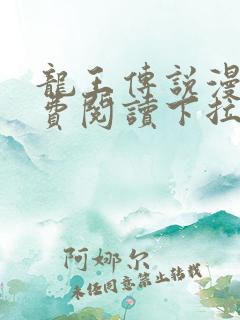 龍王傳說漫
費閱讀下拉
阿娜尔
未经同意禁止转载